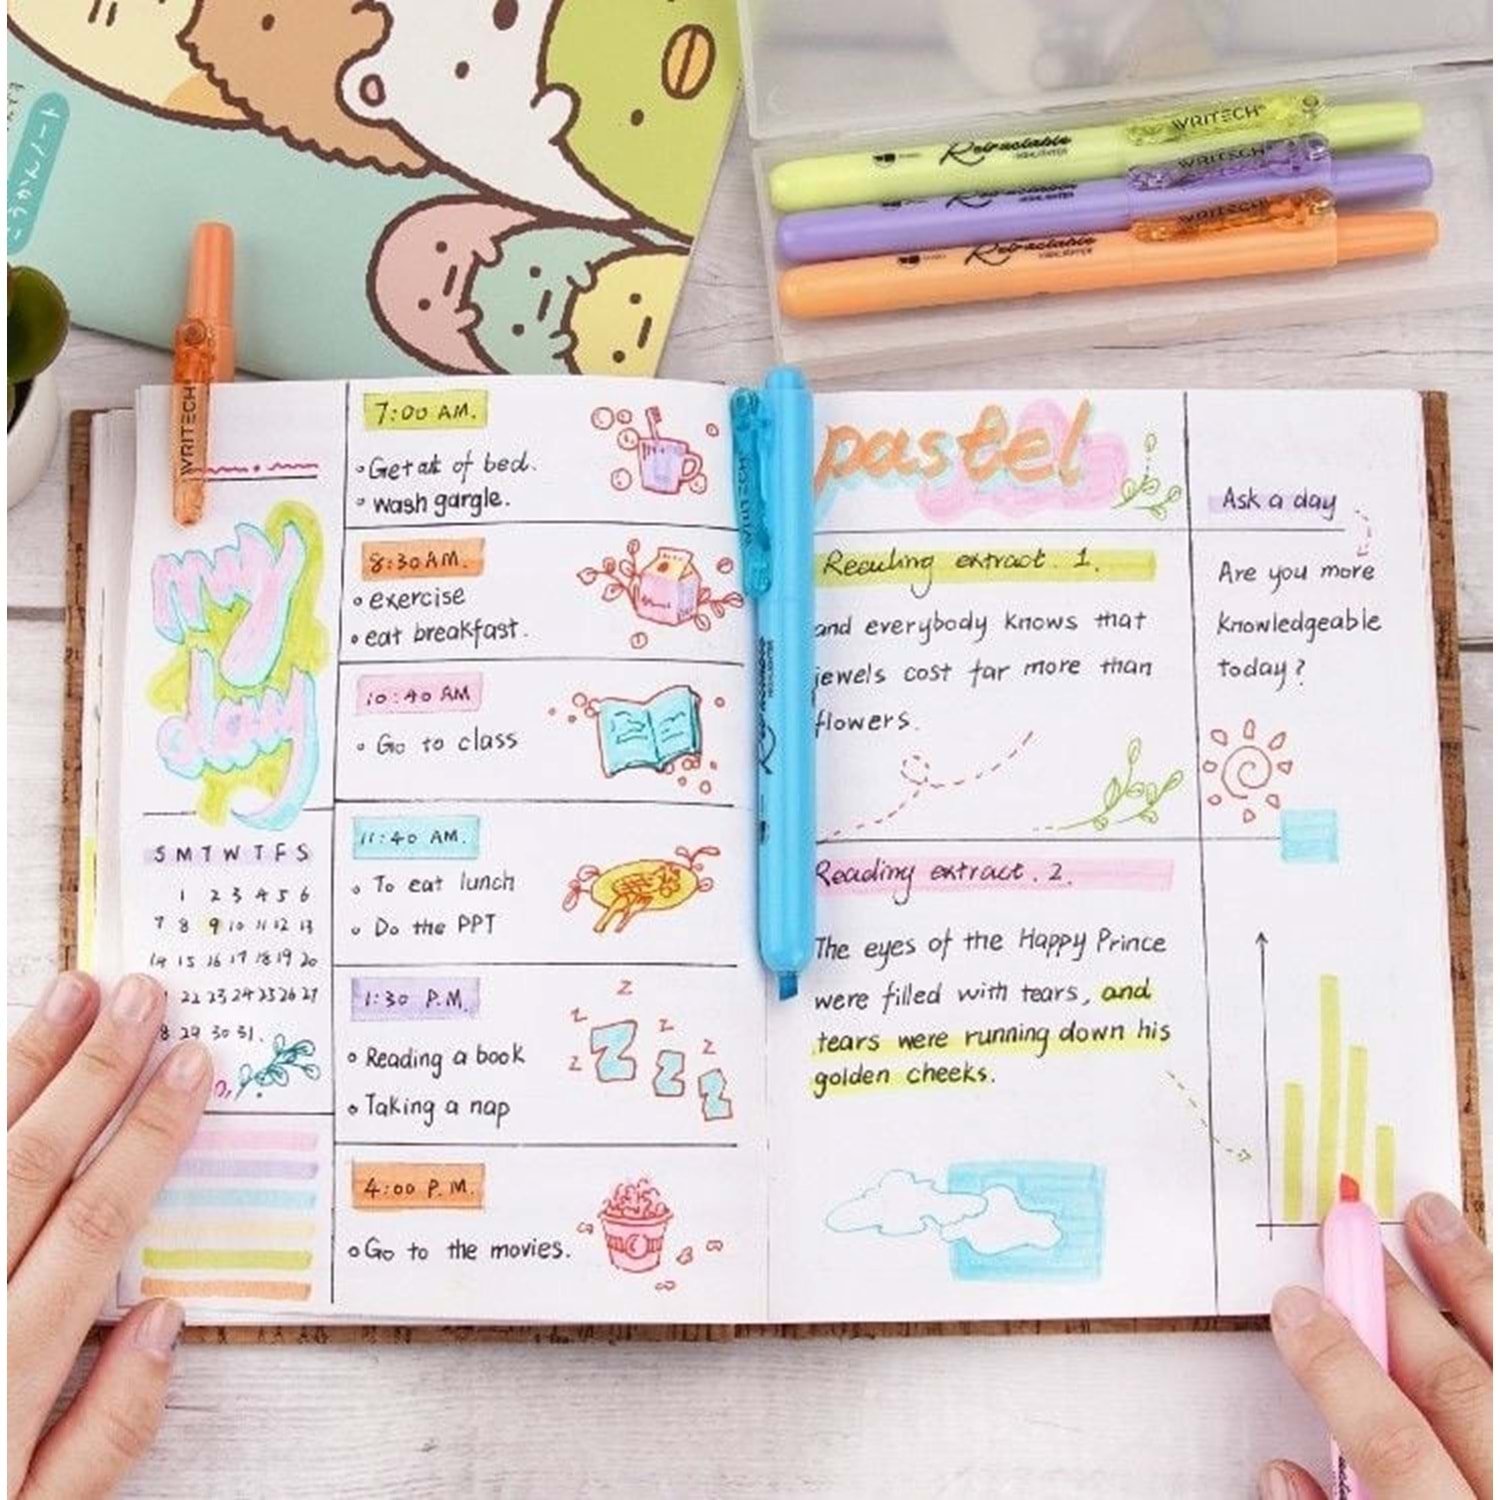 WRITECH
Retractable
HIGHLIGHTER
WRITECH
Retractable
HIGHLIGHTER
WRITECH
Retractable
HIGHLIGHTER
WRITECH
WRITECH
HIGHLIGHTER
my
day
S M T W T F S
1 2 3 4 5 6
7 8 9 10 11 12 13
14 15 16 17 18 19 20
22 23 24 25 26 27
8 29 30 31.
7:00 AM.
Get out of bed.
wash gargle.
8:30 AM.
exercise
eat breakfast.
10:40 AM
Go to class
11:40 AM.
To eat lunch
Do the PPT
1:30 P.M.
Reading a book
Taking a nap
z
z z
z z
Z Z Z
4:00 P.M.
Go to the movies.
pastel
Reading extract. 1.
and everybody knows that
jewels cost far more than
flowers.
Reading extract. 2.
The eyes of the Happy Prince
were filled with tears, and
tears were running down his
golden cheeks.
Ask a day
Are you more
knowledgeable
today?